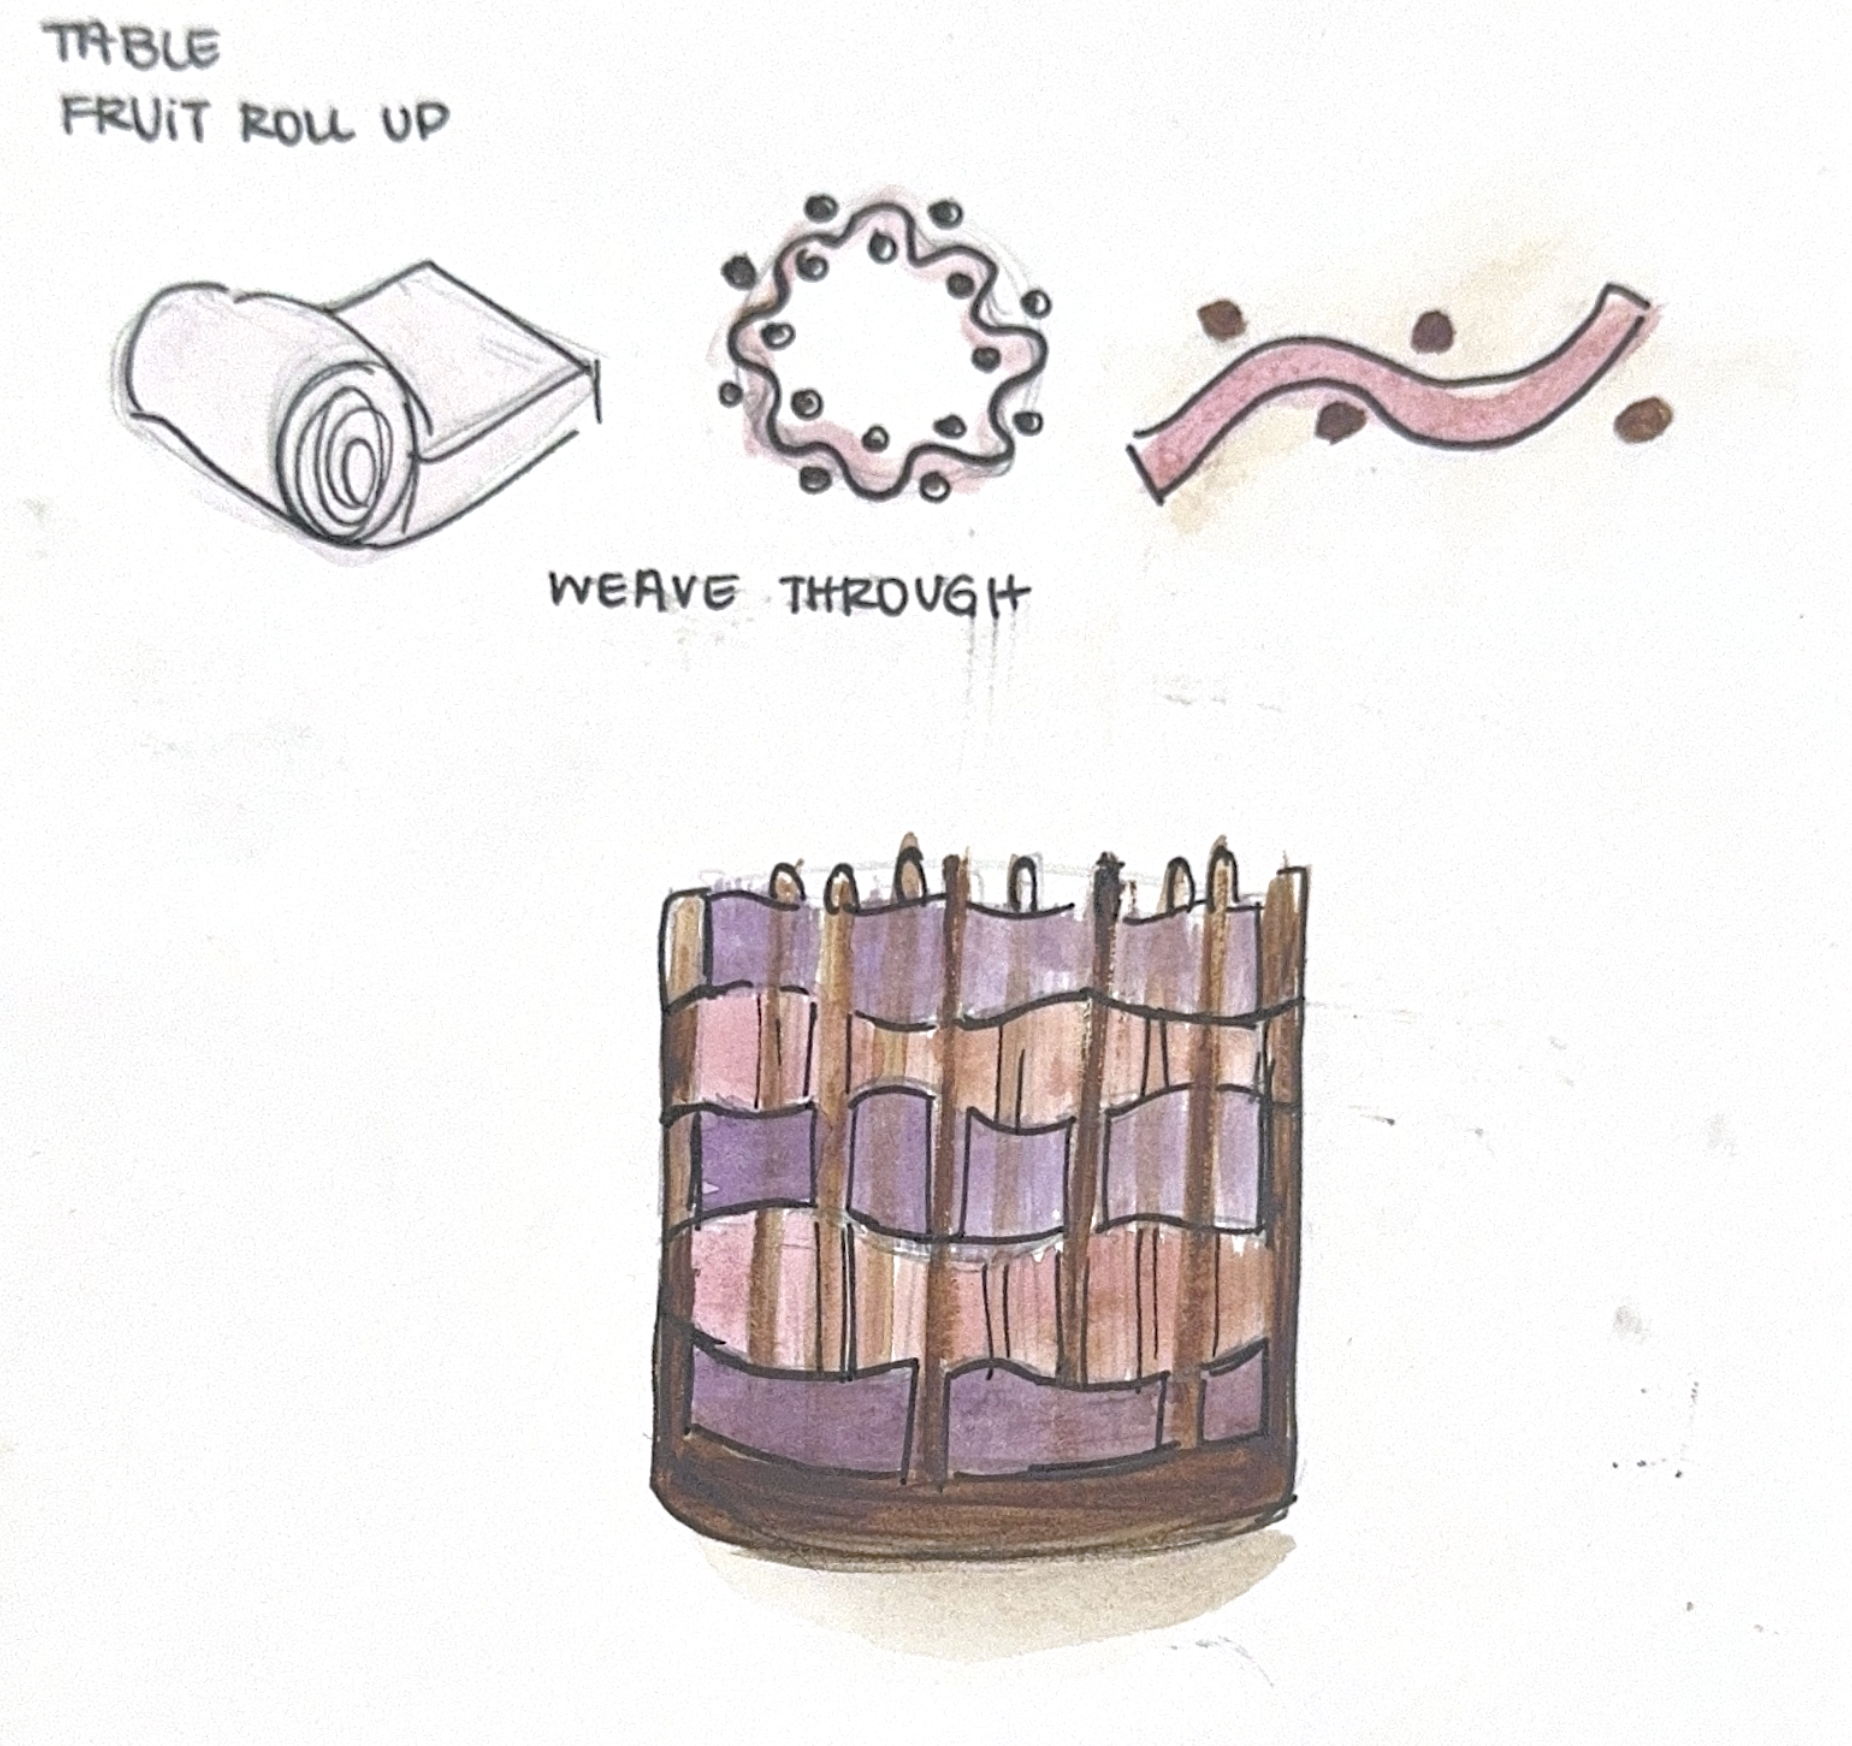 TABLE
FRUiT ROLL UP
WEAVE THROUGH